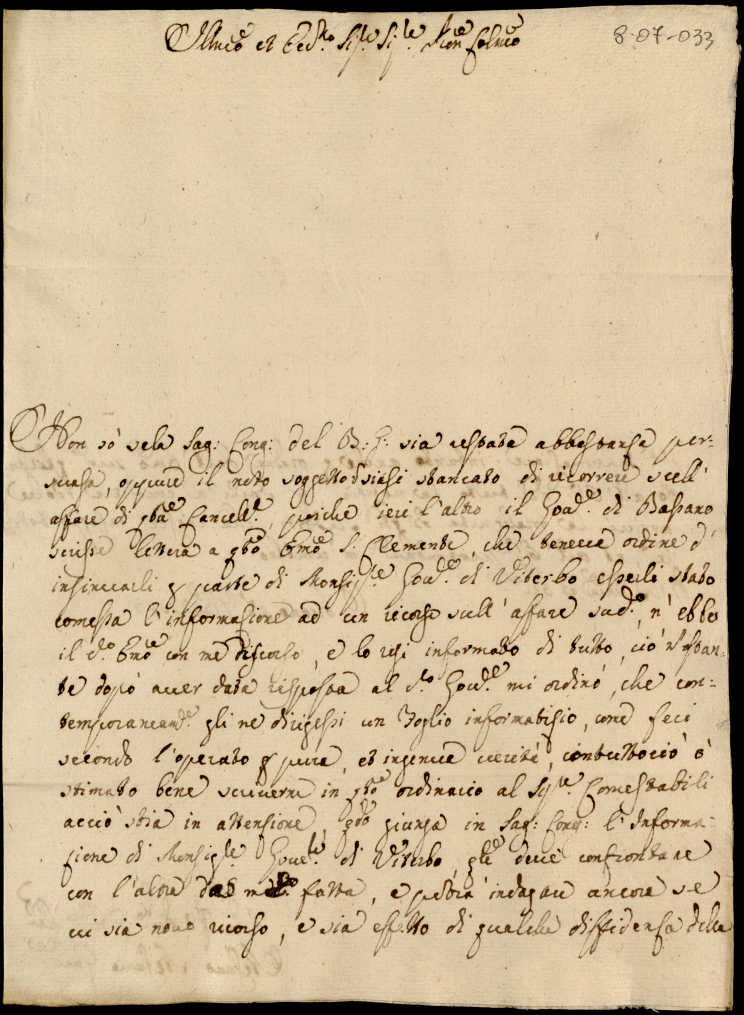 Illmo et Ecc.mo Sig.re Sig.re Pron Colmo
8-07-033
Non sò se la Sag: Cong: del B: G: sia restata abbastanza per:
suasa, oppure il noto soggetto siasi stancato di ricorrere sull'
affare di q̃ta Cancell.a, poiche ieri l'altro il Gov.re di Bassano
scrisse lettera a q̃to Emo S. Clemente, che tenece ordine d'
insinuarli p parte di Monsig.re Gov.re di Viterbo esserli stato
comessa l'informazione ad un ricorso sull'affare sud.o, n'ebbe
il d.o Emo con me discorso, e lo resi informato di tutto, ciò n'ostan:
te dopò aver data risposta al d.o Gov.re mi ordinò, che con:
temporaneam.e gli ne dirigessi un Foglio informatisio, come feci
secondo l'operato p pura, et ingenua verità, contuttociò ò
stimato bene scriverne in q̃to ordinario al Sig.re Comestabili
acciò stia in attenzione q̃do giunga in Sag: Cong: l'Informa-
zione di Monsig.re Gove.re di Viterbo q̃le deve confrontare
con l'altra da me fatta, e potrà indagare ancora se
vi sia novo ricorso, e sia effetto di qualche diffidenza della